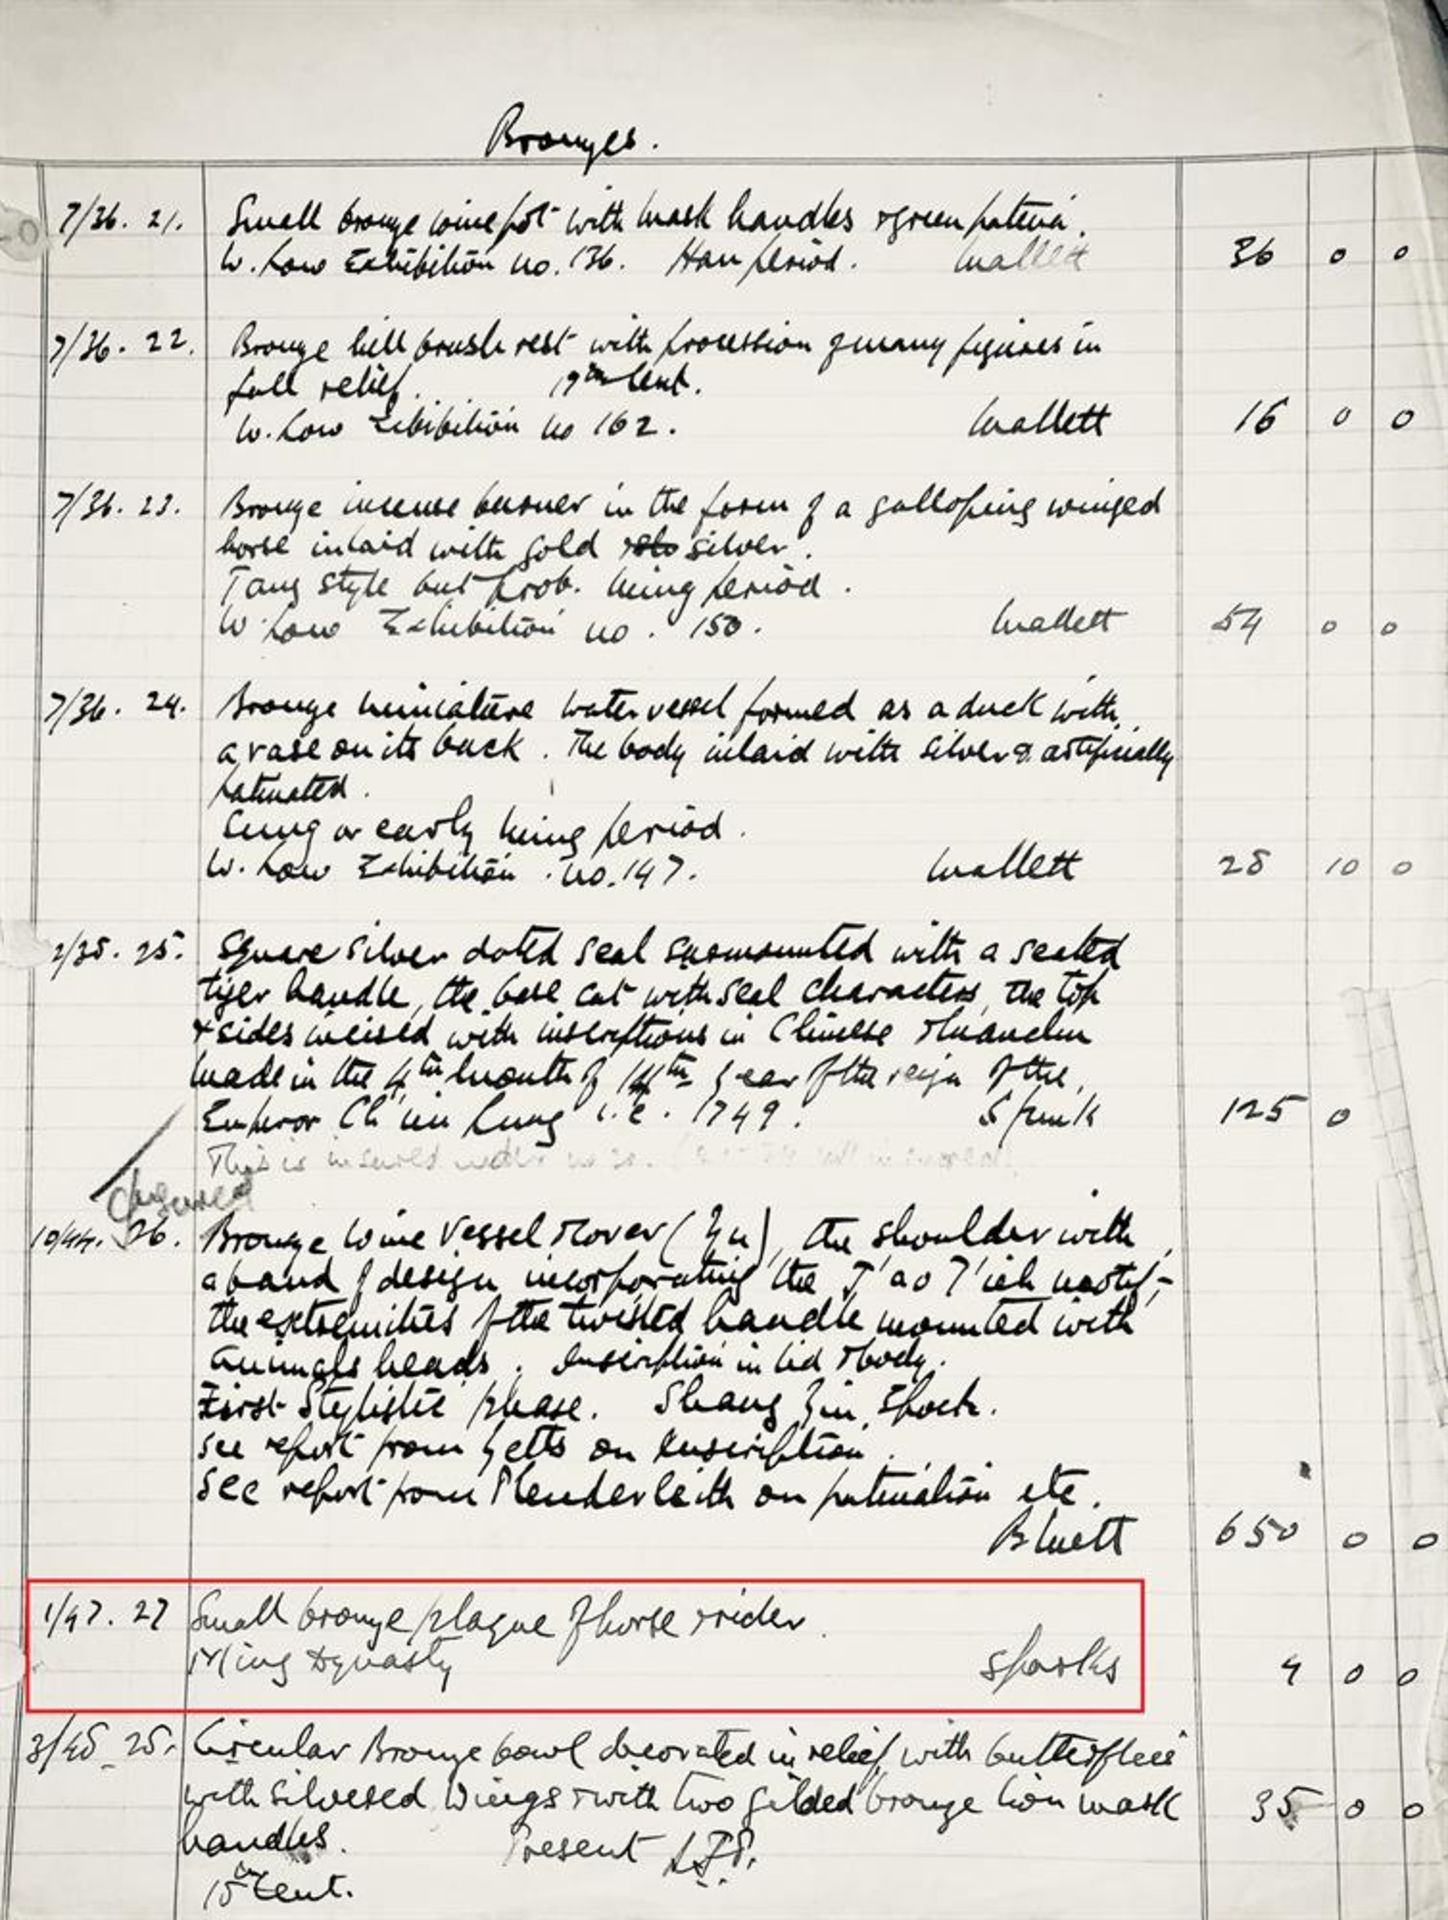 Bronzes.
7/36. 21. Small bronze wine pot with mask handles & green patina.
W. Low Exhibition no. 136. Han period. Mallett 36 0 0
7/36. 22. Bronze hill brush rest with procession of many figures in
full relief. 17th Cent.
W. Low Exhibition no 162. Mallett 16 0 0
7/36. 23. Bronze incense burner in the form of a galloping winged
horse inlaid with gold & silver.
Tang style but prob. Ming period.
W. Low Exhibition no. 150. Mallett 54 0 0
7/36. 24. Bronze miniature water vessel formed as a duck with
a vase on its back. The body inlaid with silver & artificially
patinated.
Sung or early Ming period.
W. Low Exhibition. no. 147. Mallett 28 10 0
25. Square silver dated seal surmounted with a seated
tiger handle, the base cut with seal characters, the top
& sides incised with inscriptions in Chinese & Manchu
Made in the 4th month of 14th year of the reign of the
Emperor Ch'ien Lung i.e. 1749. Spink 125 0
This is insured under no
10/44. 26. Bronze Wine Vessel & Cover (Yu), the shoulder with
a band of design incorporating the T'ao T'ieh motif,
the extremities of the twisted handle mounted with
animals heads. Inscription in lid & body.
First Stylistic phase. Shang Yin Epoch.
See report from Yetts on Inscription.
See report from Plenderleith on patination etc.
Bluett 650 0 0
1/47. 27 Small bronze plaque of horse & rider.
Ming Dynasty Sparks 4 0 0
Circular Bronze bowl decorated in relief with butterflies
with silvered wings & with two gilded bronze lion mask 35 0 0
handles. Present
15th Cent.